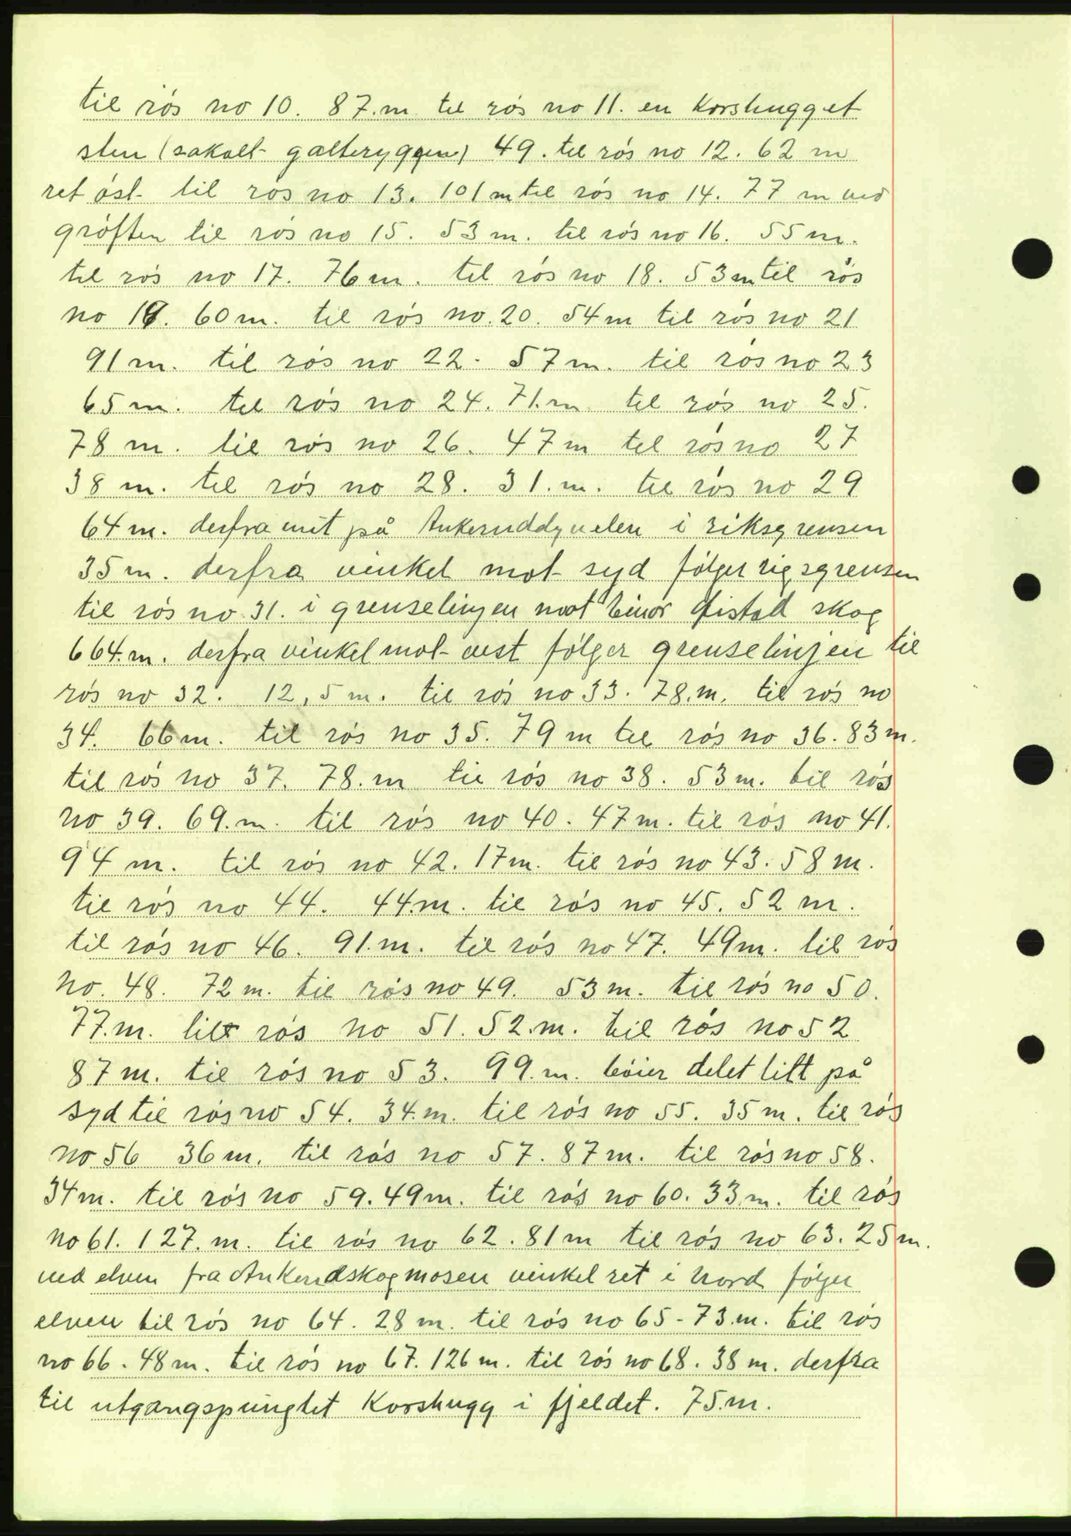 til rós no 10. 87.m til rós no 11. en Korshugget
sten (sakalt galteryggen) 49. til rós no 12. 62 m
ret óst til rós no 13. 101 m til rós no 14. 77 m ved
gróften til rós no 15. 53 m. til rós no 16. 55 m.
til rós no 17. 76 m. til rós no 18. 53 m til rós
no 19. 60 m. til rós no. 20. 54 m til rós no 21
91 m. til rós no 22. 57 m. til rós no 23
65 m. til rós no 24. 71.m til rós no 25.
78 m. til rós no 26. 47 m til rós no 27
38 m. til rós no 28. 31.m. til rós no 29
64 m. derfra mit på i riksgrensen
35 m. derfra vinkel mot syd følger rigsgrensen
til rós no 31. i grenselinjen mot skog
664.m. derfra vinkel mot vest følger grenselinjen til
rós no 32. 12,5 m. til rós no 33. 78.m. til rós no
34. 66 m. til rós no 35. 79 m til rós no 36. 83 m.
til rós no 37. 78.m til rós no 38. 53 m. til rós
no 39. 69.m. til rós no 40. 47 m. til rós no 41.
94 m. til rós no 42. 17 m. til rós no 43. 58 m.
til rós no 44. 44.m. til rós no 45. 52 m.
til rós no 46. 91.m. til rós no 47. 49 m. til rós
no. 48. 72 m. til rós no 49. 53 m. til rós no 50.
77.m. til rós no 51. 52.m. til rós no 52
87 m. til rós no 53. 99.m. bóier delet litt på
syd til rós no 54. 34.m. til rós no 55. 35 m. til rós
no 56 36 m. til rós no 57. 87 m. til rós no 58.
34 m. til rós no 59. 49 m. til rós no 60. 33 m. til rós
no 61. 127.m. til rós no 62. 81 m til rós no 63. 25 m.
ved elven fra Ankerudskogmosen vinkel ret i nord følger
elven til rós no 64. 28 m. til rós no 65 - 73.m. til rós
no 66. 48 m. til rós no 67. 126 m. til rós no 68. 38 m. derfra
til utgangspungtet Korshugg i fjeldet. 75.m.